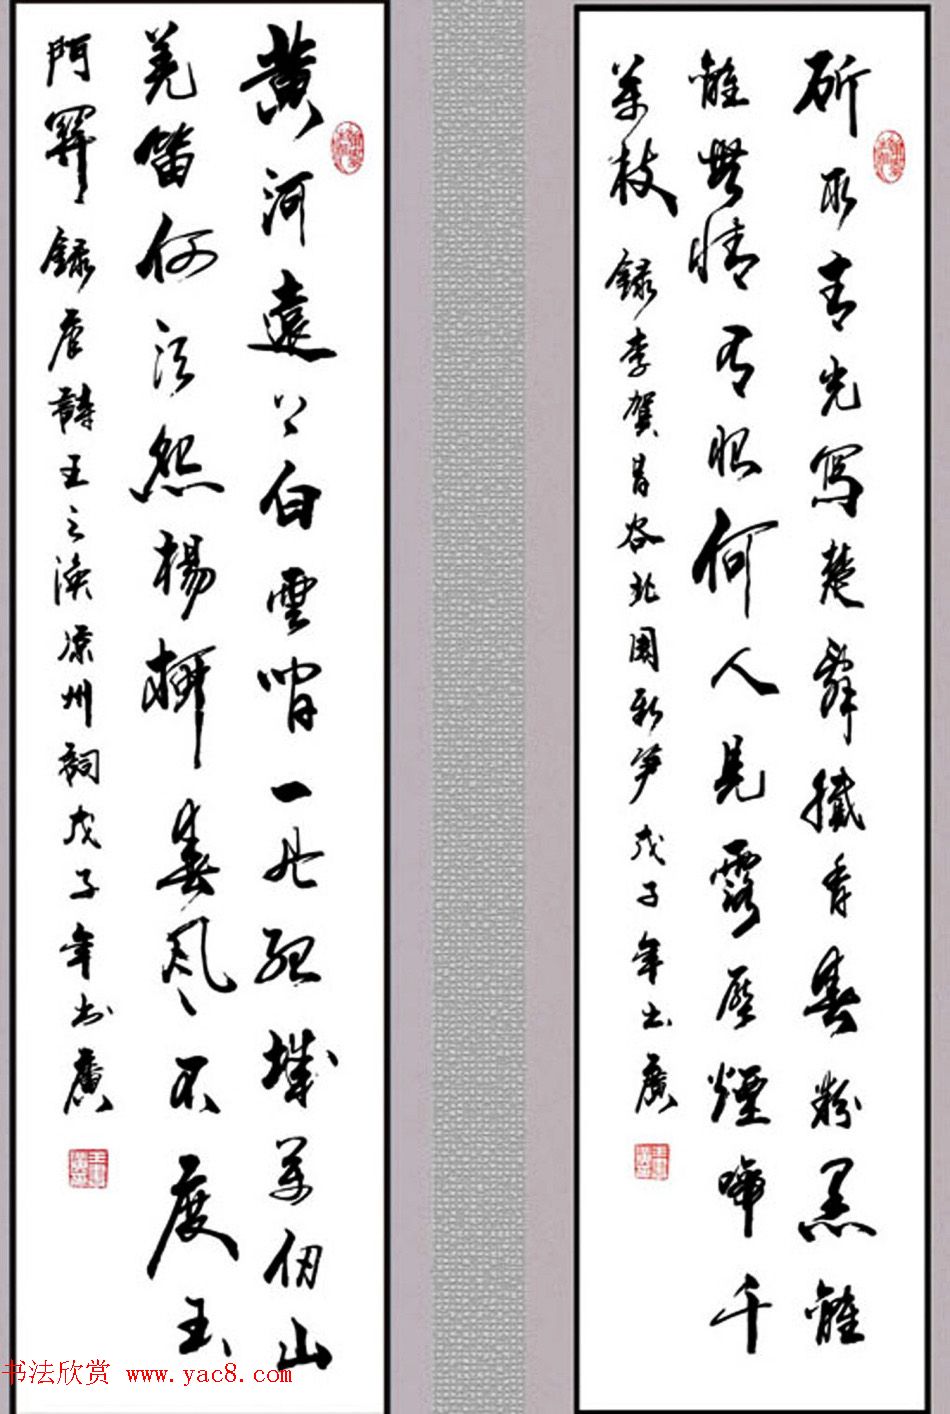 斫取青光写楚辭膩香春粉黑離
離無情有恨何人見露壓煙啼千
萬枝 錄李賀昌谷北園新笋 戊子年書 廣
黄河遠上白雲間一片孤城萬仞山
羌笛何須怨楊柳春風不度玉
門關 錄唐詩王之渙凉州詞戊子年書 廣
书法欣赏 www.yac8.com